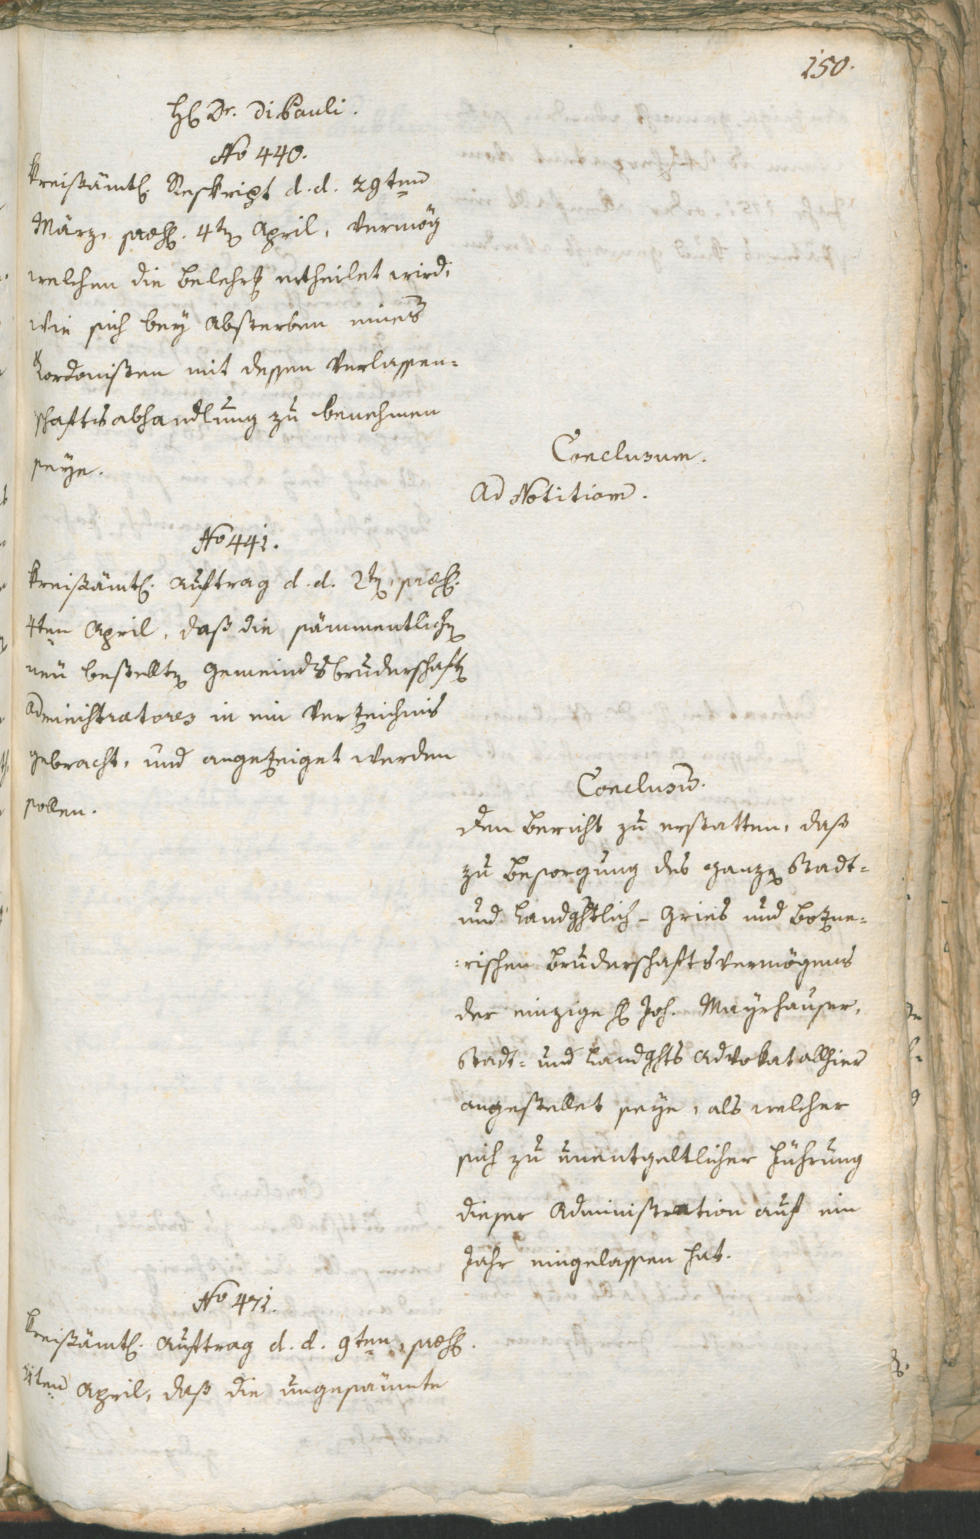 150.
H. Dr. Di Pauli.
No 440.
Kreißämtl. Reskript d. d. 29ten
März, præs. 4ten April, vermög
welchen die Belehrg ertheilet wird,
wie sich bey Absterben eines
Kordonisten mit dessen Verlassen-
schaftsabhandlung zu benehmen
seye.
Conclusum.
Ad Notitiam.
No 441.
Kreißämtl. Auftrag d. d. 2ten, præs.
4ten April, daß die sämmentlichen
neu bestellten Gemeinds bruderschaften
Administratores in ein Verzeichnis
gebracht, und angezeiget werden
sollen.
Conclusum.
Den Bericht zu erstatten, daß
zu Besorgung des ganzen Stadt-
und Landghtlich-Gries und Bozne-
:rischen Bruderschaftsvermögens
der einzige H Joh. Mayrhauser,
Stadt- und Landghts Advokat allhier
angestellet seye, als welcher
sich zu unentgeltlicher Führung
dieser Administration auf ein
Jahr eingelassen hat.
No 471.
Kreißämtl. Auftrag d. d. 9ten, præs.
11ten April, daß die ungesäumte